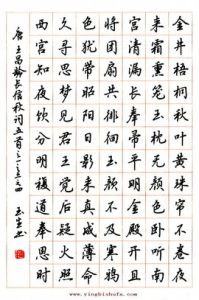 金井梧桐秋叶黄珠帘不卷夜
来霜熏笼玉枕无颜色卧听南
宫清漏长奉帚平明金殿开且
将团扇共徘徊玉颜不及寒鸦
色犹带昭阳日影来真成薄命
久寻思梦见君王觉后疑火照
西宫知夜饮分明复道奉恩时
唐王昌龄长信秋词五首之一之三之四
www.yingbishufa.com